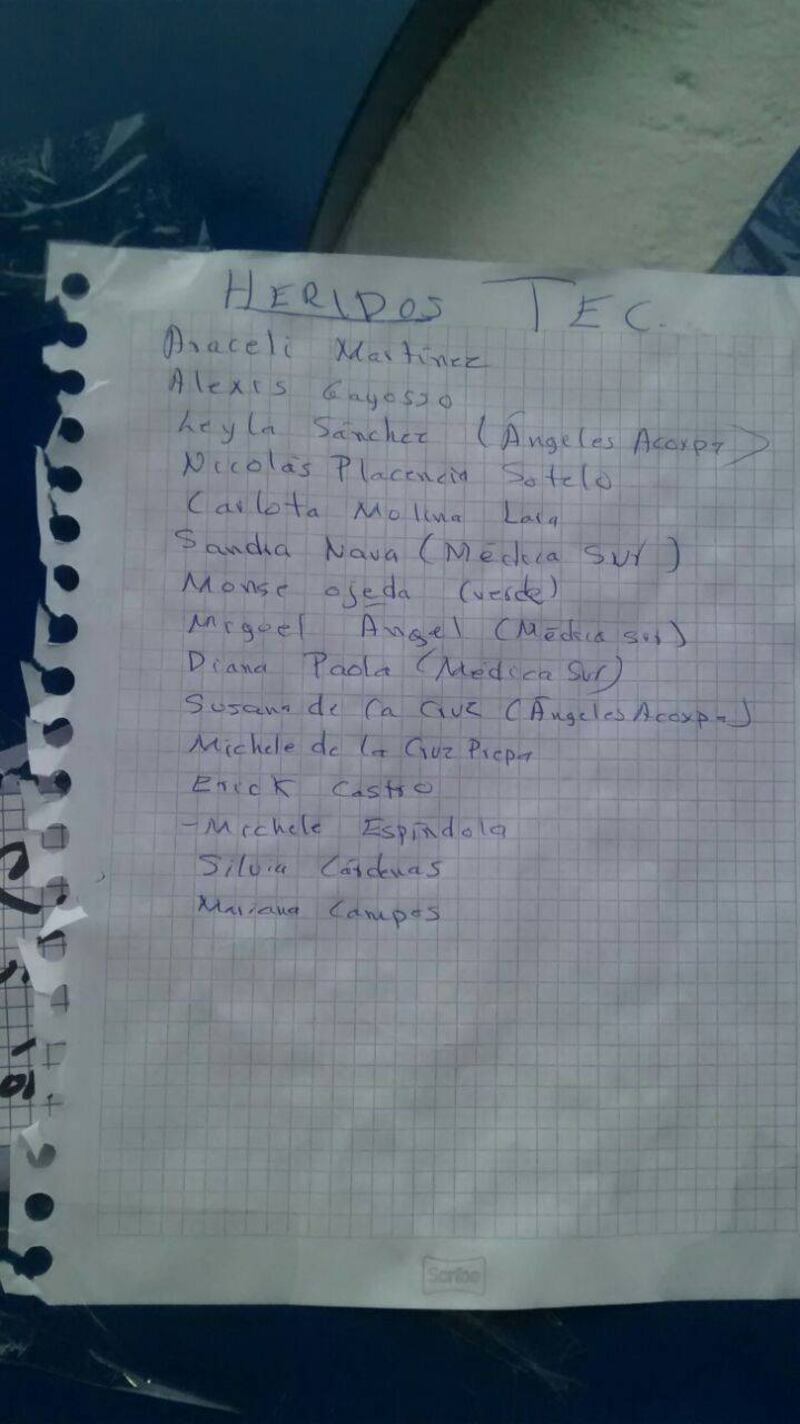 HERIDOS TEC.
Araceli Martínez
Alexis Gayosso
Leyla Sánchez (Ángeles Acoxpa)
Nicolás Placencia Sotelo
Carlota Molina Lara
Sandra Nava (Médica Sur)
Monse ojeda (verde)
Miguel Angel (Médica sur)
Diana Paola (Médica Sur)
Susana de la Cruz (Ángeles Acoxpa)
Michele de la Cruz Prepa
Erick Castro
-Michele Espíndola
Silvia Cárdenas
Mariana Campos
Scribe